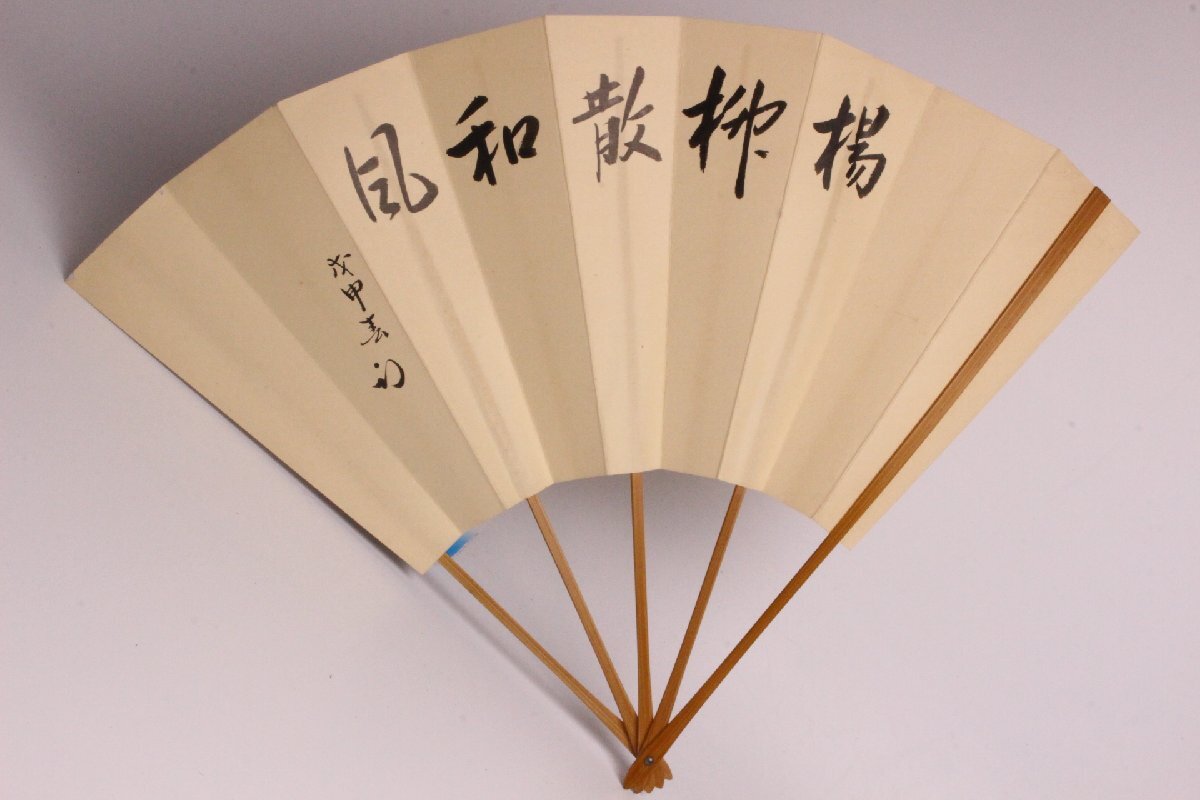 楊柳散和風
戊申春